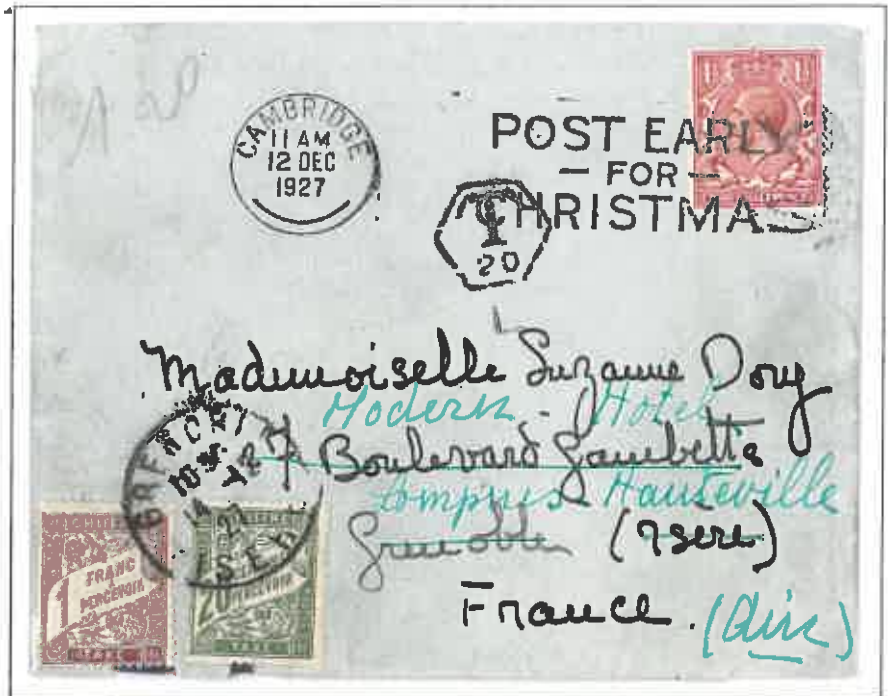 1 20
CAMBRIDGE
11 AM
12 DEC
1927
POST EARLY
— FOR —
CHRISTMAS
T
20
Mademoiselle Suzanne Dony
Modern Hotel
Boulevard Gambetta
Hauteville
Grenoble (Isère)
France. (Ain)
ISERE
1 FRANC
A PERCEVOIR
20
PERCEVOIR
TAXE